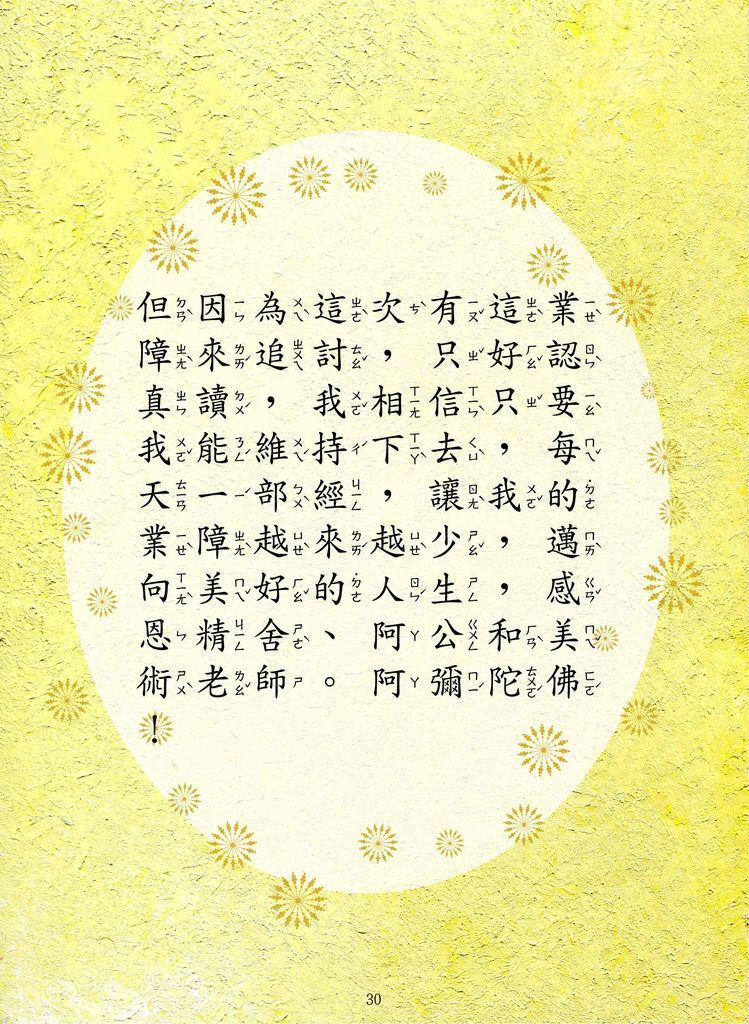 但因為這次有這業
障來追討，只好認
真讀，我相信只要
我能維持下去，每
天一部經，讓我的
業障越來越少，邁
向美好的人生，感
恩精舍、阿公和美
術老師。阿彌陀佛
！
30